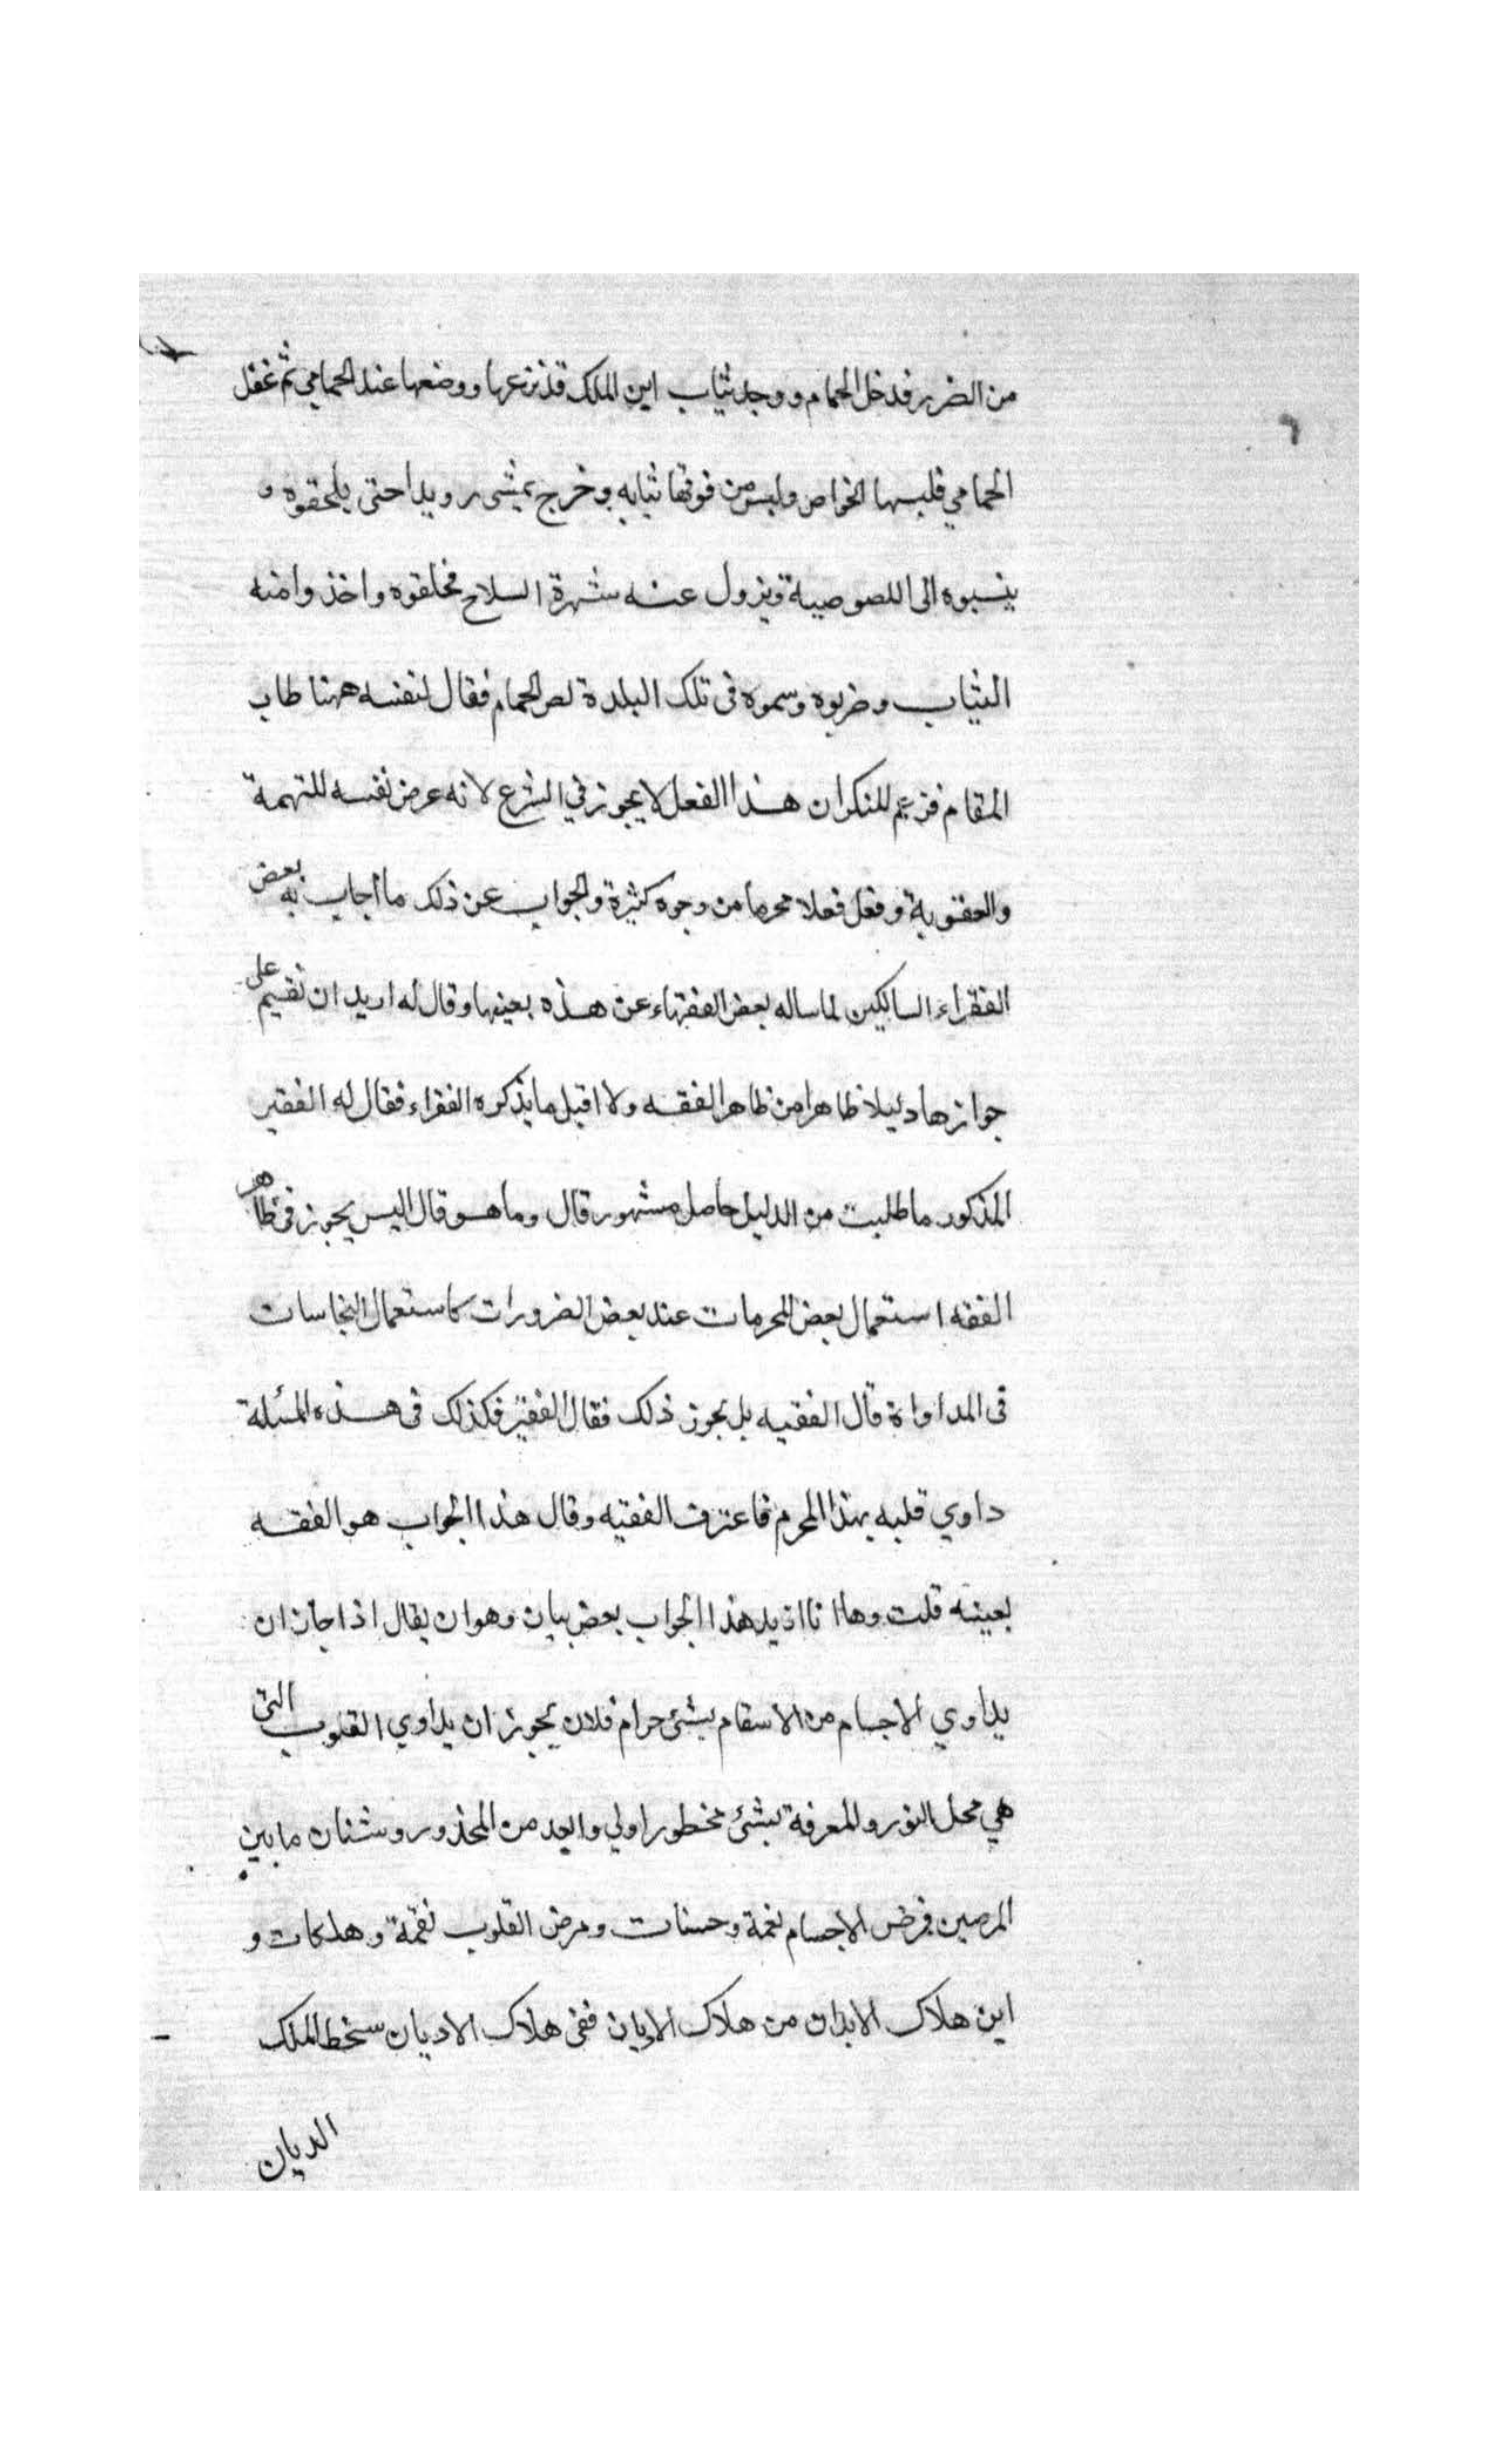 من الضرر فدخل الحمام ووجد ثياب ابن الملك قد نزعها ووضعها عند الحمامي ثم غفل
الحمامي فلبسها الخواص ولبس من فوقها ثيابه وخرج يمشى رويدا حتى يلحقوه و
ينسبوه الى اللصوصية ويزول عنه شهرة السلاح فخلقوه واخذوا منه
الثياب وضربوه وسموه فى تلك البلدة لص الحمام فقال لنفسه ههنا طاب
المقام فزعم المنكر ان هذا الفعل لا يجوز في الشرع لانه عرض نفسه للتهمة
والعقوبة وفعل فعلا محرما من وجوه كثيرة والجواب عن ذلك ما أجاب به بعض
الفقراء السالكين لما ساله بعض الفقهاء عن هذه بعينها وقال له اريد ان تقيم على
جوازها دليلا ظاهرا من ظاهر الفقه ولا اقبل ما يذكره الفقراء فقال له الفقير
المذكور ما طلبت من الدليل حاصل مشهور قال وما هو قال اليس يجوز فى ظاهر
الفقه استعمال بعض المحرمات عند بعض الضرورات كاستعمال النجاسات
فى المداواة قال الفقيه بل يجوز ذلك فقال الفقير فكذلك فى هذه المسئلة
داوي قلبه بهذا المحرم فاعترف الفقيه وقال هذا الجواب هو الفقه
بعينه قلت وها انا ازيد هذا الجواب بعض بيان وهو ان يقال اذا جاز ان
يداوي الاجسام من الاسقام بشئ حرام فلان يجوز ان يداوي القلوب التى
هي محل النور والمعرفة بشئ مخطور اولي وابعد من المحذور وشتان ما بين
المرضين فمرض الاجسام نعمة وحسنات ومرض القلوب نقمة وهلكات و
اين هلاك الابدان من هلاك الاديان ففى هلاك الاديان سخط الملك
الديان
٦